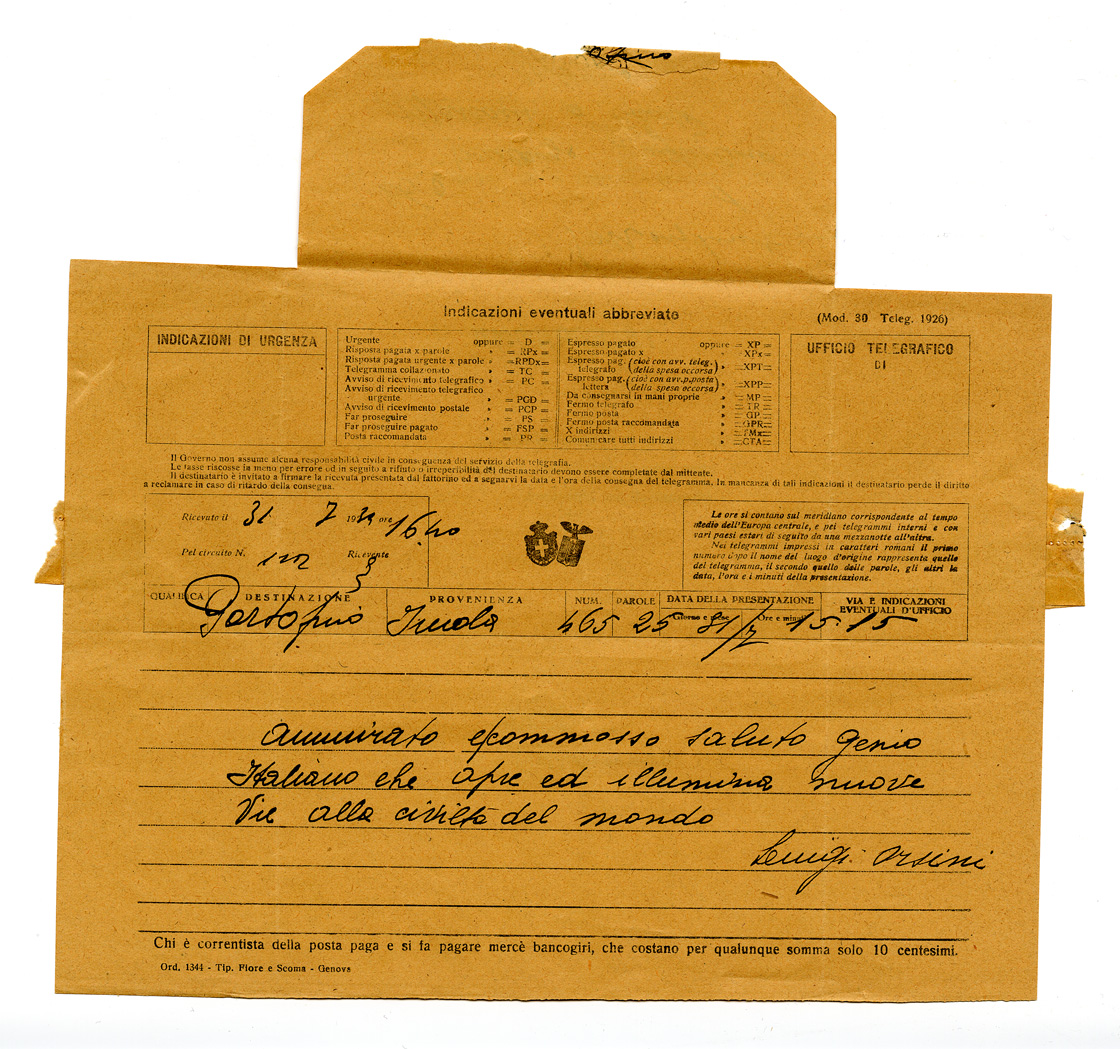 Indicazioni eventuali abbreviate
(Mod. 30 Teleg. 1926)
INDICAZIONI DI URGENZA
Urgente oppure = D =
Risposta pagata x parole » = RPx =
Risposta pagata urgente x parole » =RPDx=
Telegramma collazionato » = TC =
Avviso di ricevimento telegrafico » = PC =
Avviso di ricevimento telegrafico
urgente » = PCD =
Avviso di ricevimento postale » = PCP =
Far proseguire » = FS =
Far proseguire pagato » = FSP =
Posta raccomandata » = PR =
Espresso pagato oppure = XP =
Espresso pagato x » = XPx =
Espresso pag. (cioè con avv. teleg.
telegrafo della spesa occorsa) » =XPT=
Espresso pag. (cioè con avv. p. posta
lettera della spesa occorsa) » =XPP=
Da consegnarsi in mani proprie » = MP =
Fermo telegrafo » = TR =
Fermo posta » = GP =
Fermo posta raccomandata » =GPR=
X indirizzi » =TMx=
Comunicare tutti indirizzi » =CTA=
UFFICIO TELEGRAFICO
DI
Il Governo non assume alcuna responsabilità civile in conseguenza del servizio della telegrafia.
Le tasse riscosse in meno per errore od in seguito a rifiuto o irreperibilità del destinatario devono essere completate dal mittente.
Il destinatario è invitato a firmare la ricevuta presentata dal fattorino ed a segnarvi la data e l'ora della consegna del telegramma. In mancanza di tali indicazioni il destinatario perde il diritto
a reclamare in caso di ritardo della consegna.
Ricevuto il 31 7 193 ore 16 40
Pel circuito N. Ricevente
Le ore si contano sul meridiano corrispondente al tempo
medio dell'Europa centrale, e pei telegrammi interni e con
vari paesi esteri di seguito da una mezzanotte all'altra.
Nei telegrammi impressi in caratteri romani il primo
numero dopo il nome del luogo d'origine rappresenta quello
del telegramma, il secondo quello delle parole, gli altri la
data, l'ora e i minuti della presentazione.
QUALIFICA DESTINAZIONE PROVENIENZA NUM. PAROLE DATA DELLA PRESENTAZIONE VIA E INDICAZIONI
Giorno e mese Ore e minuti EVENTUALI D'UFFICIO
Portofino Imola 465 25 31/7 15.15
Ammirato e commosso saluto genio
Italiano che apre ed illumina nuove
Vie alla civiltà del mondo
Luigi Orsini
Chi è correntista della posta paga e si fa pagare mercè bancogiri, che costano per qualunque somma solo 10 centesimi.
Ord. 1344 - Tip. Fiore e Scoma - Genova